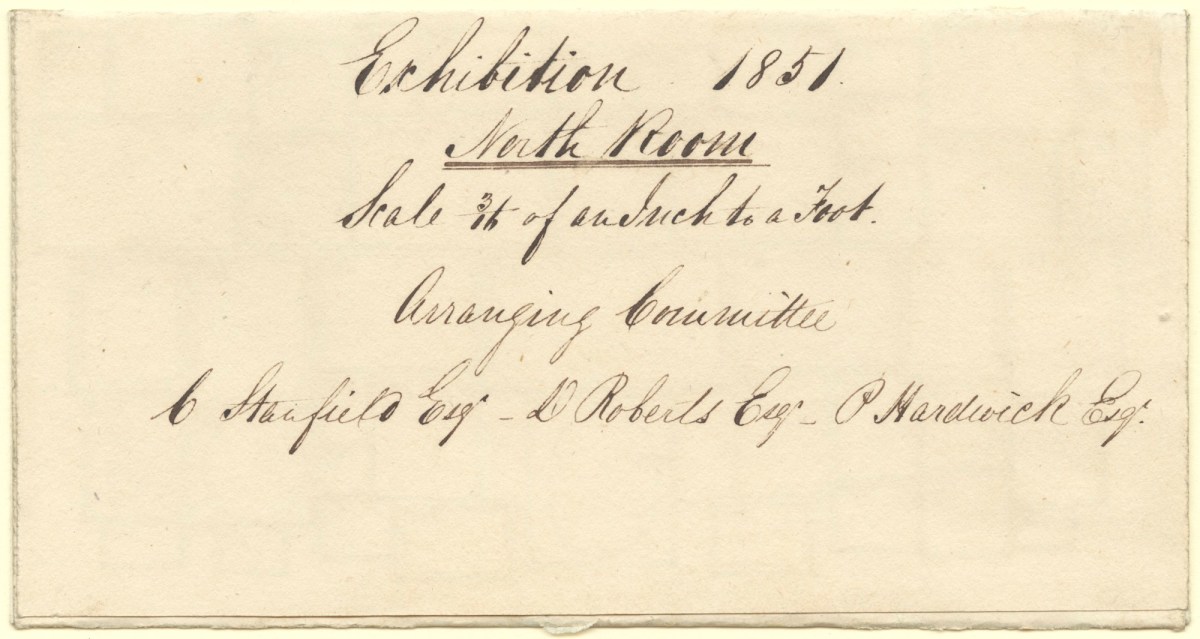 Exhibition 1851.
North Room
Scale 3/16 of an Inch to a Foot.
Arranging Committee
C Stanfield Esqr - D Roberts Esqr - P Hardwick Esqr.